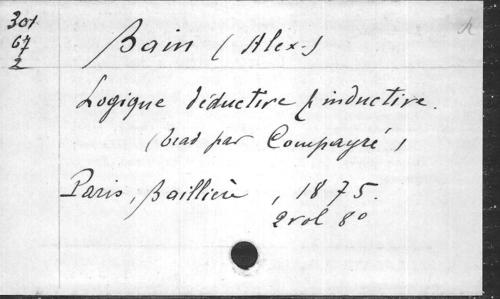 301
67
2
Bain (Alex.)
Logique déductive & inductive.
(trad par Compayré)
Paris, Baillière, 1875.
2 vol 8°